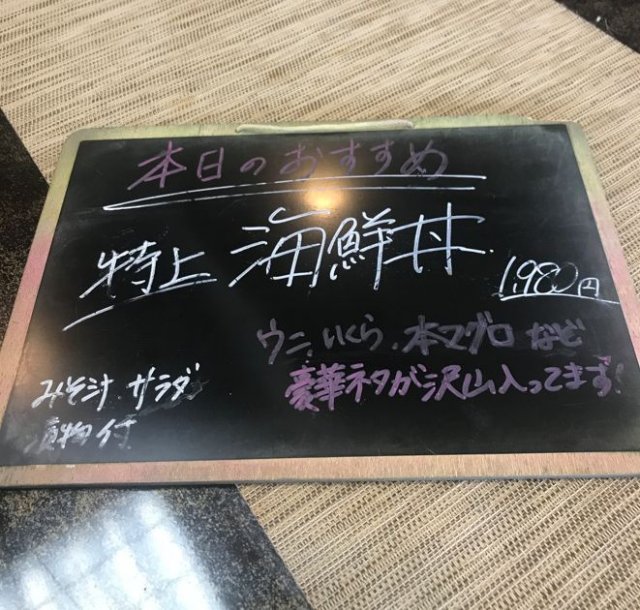 本日のおすすめ
特上 海鮮丼 1,980円
ウニ、いくら、本マグロ など
豪華ネタが沢山入ってます!
みそ汁 サラダ
漬物 付